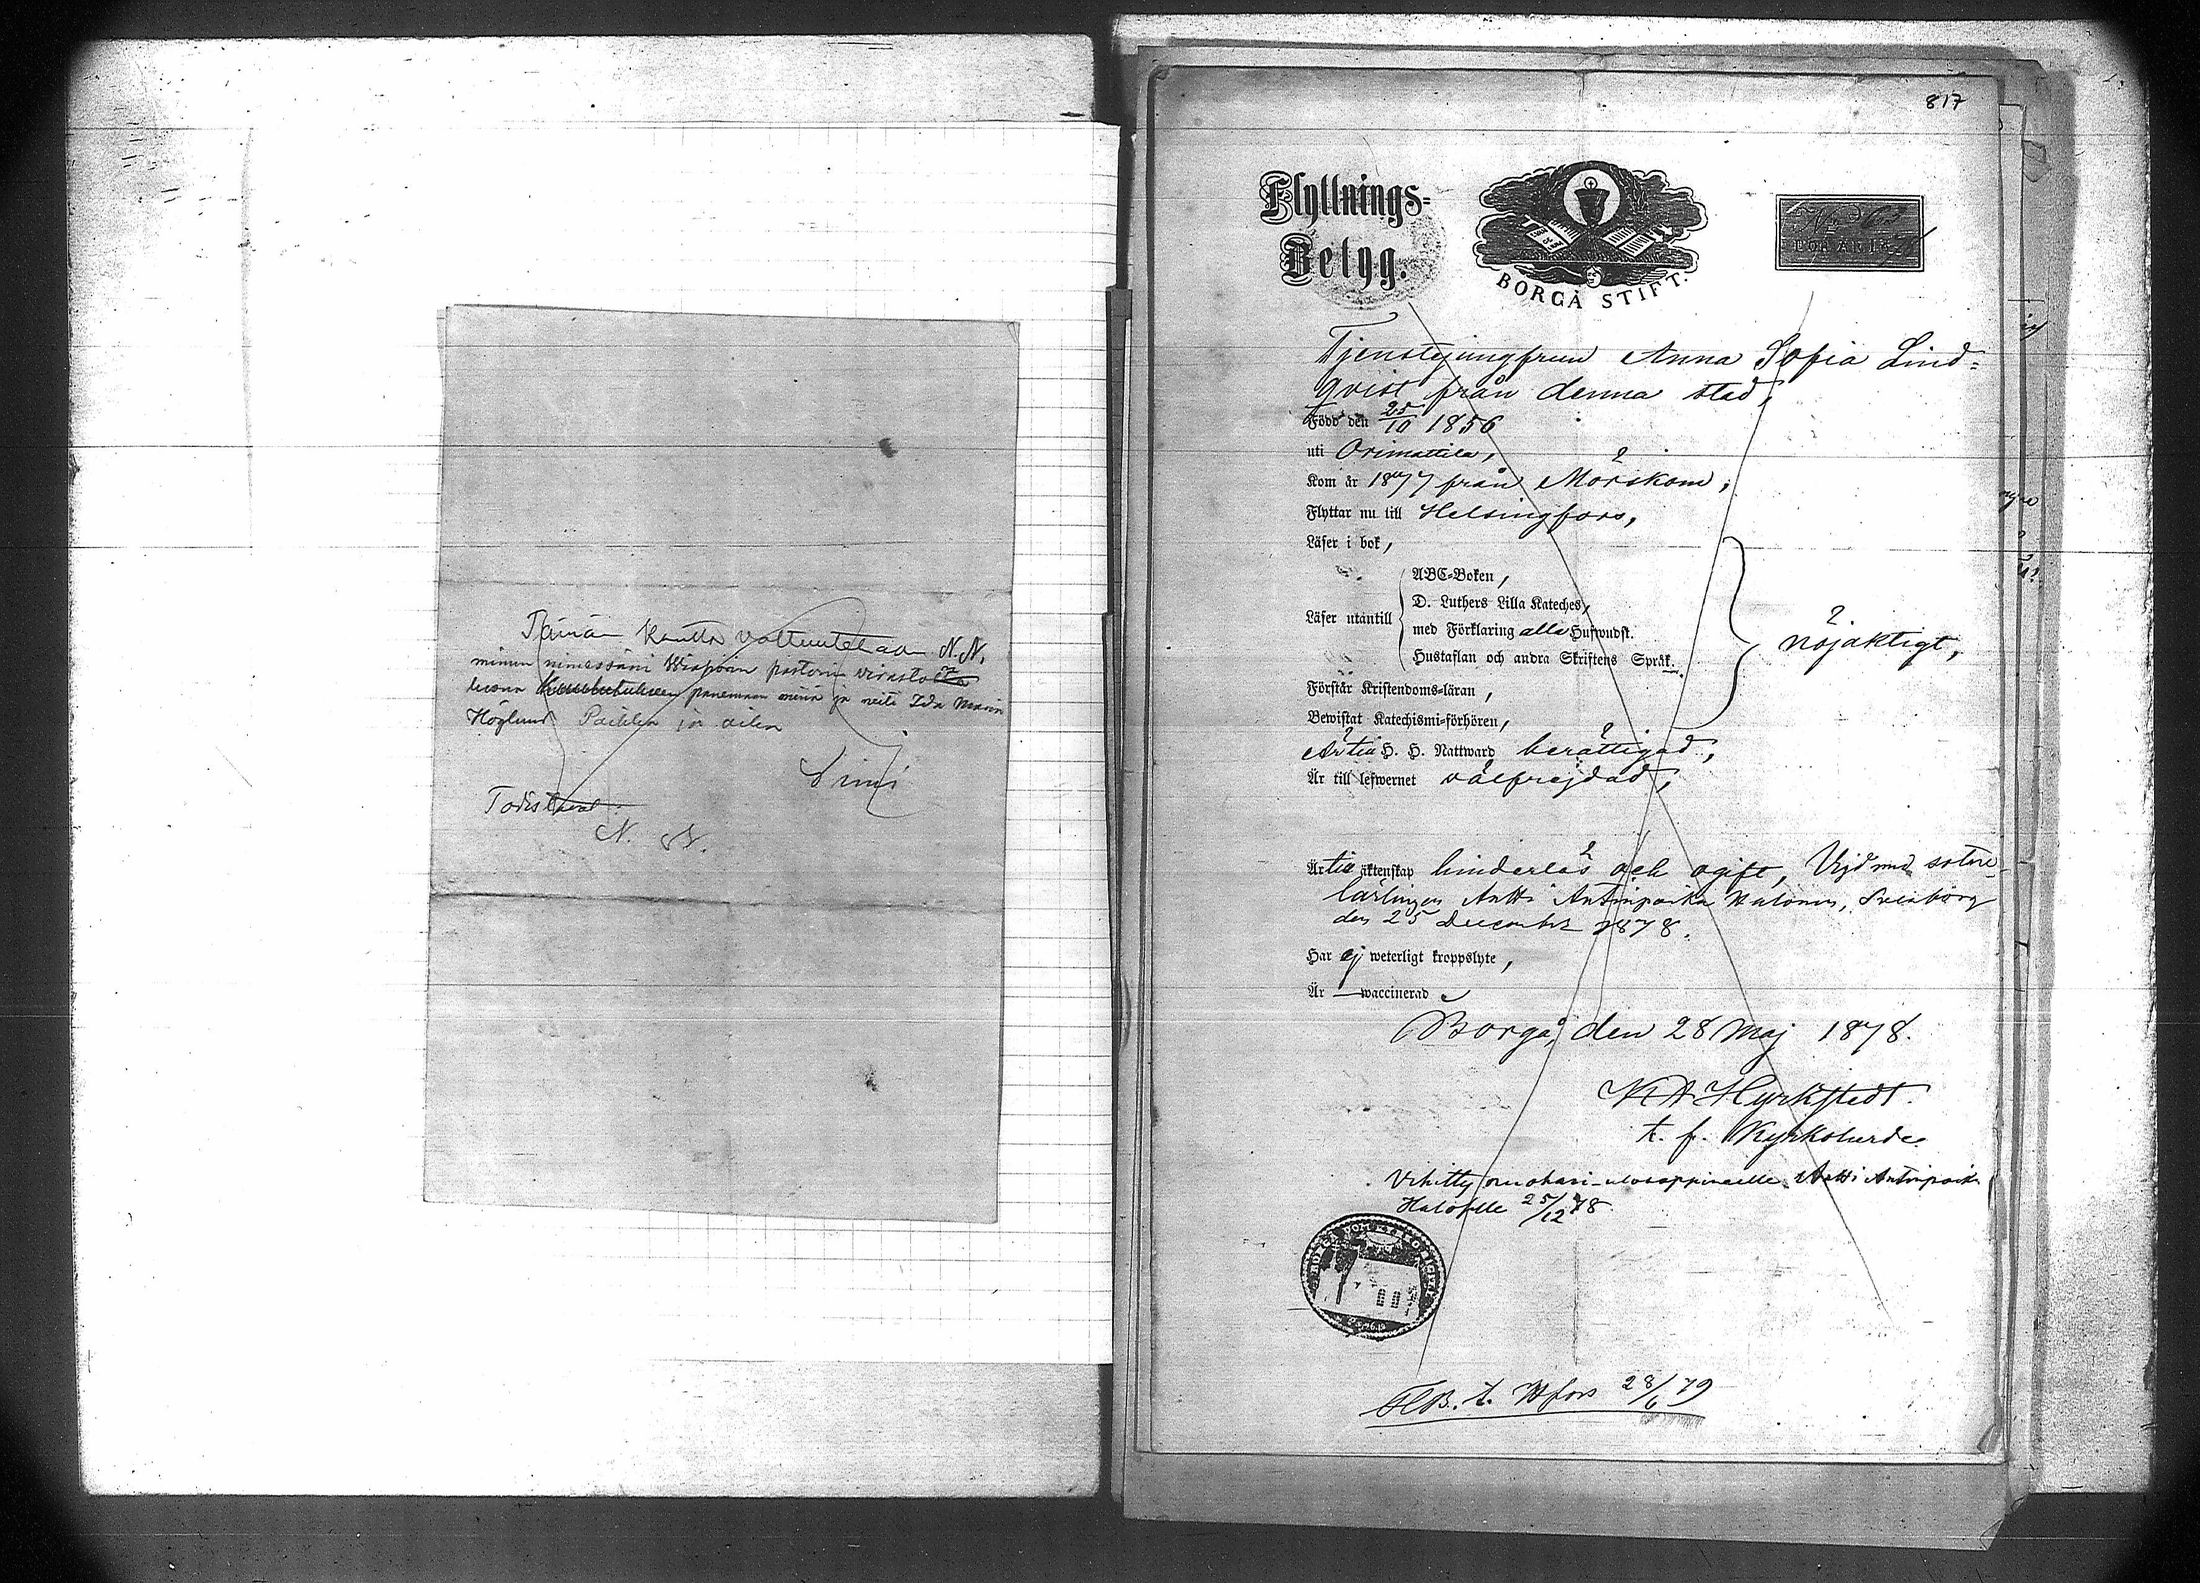 Tämän kautta valtuutetaan N. N.
minun nimessäni Wiaporin pastorin virasto
luona panemaan minä ja neiti Ida Maria
Höglund
Nimi
Todistavat
N. N.
817
Flyttnings-
Betyg.
BORGÅ STIFT.
FÖR ÅR 18
Tjenstejungfrun Anna Sofia Lind=
qvist från denna stad,
Född den 25/10 1856
uti Orimattila,
Kom år 1877 från Mörskom,
Flyttar nu till Helsingfors,
Läser i bok,
ABC-Boken,
D. Luthers Lilla Kateches,
Läser utantill
med Förklaring alla Hufwudst.
nöjaktigt,
Hustaflan och andra Skriftens Språk.
Förstår Kristendoms-läran,
Bewistat Katechismi-förhören,
Är till H. H. Nattward berättigad,
Är till lefwernet välfrejdad,
Är till äktenskap hinderlös och ogift, Vigd med
lärlingen Antti Antinpoika Halonen, Sveaborg
den 25 December 1878.
Har ej weterligt kroppslyte,
Är — waccinerad
Borgå, den 28 Maj 1878.
Hyrkstedt.
t. f. Kyrkoherde
Vihitty Antti Antinpoika
25/12 78
FB. t. Hfors 28/6 79